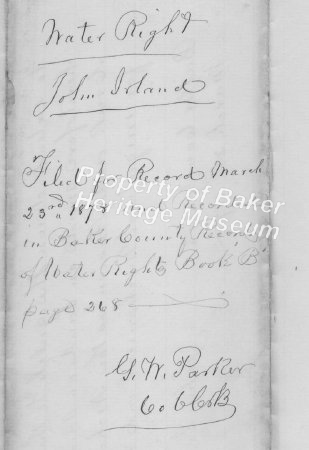 Water Right
John Irland
Filed for Record March
23rd 187 and Recorded
in Baker County Records
of Water Rights Book "B"
page 268
G. W. Parker
Co Clerk
Property of Baker
Heritage Museum